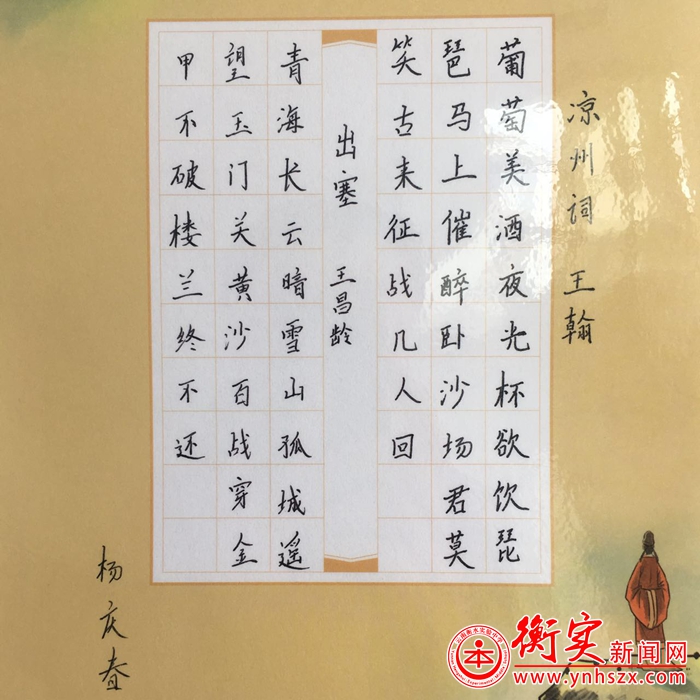 凉州词 王翰
葡萄美酒夜光杯欲饮琵
琶马上催醉卧沙场君莫
笑古来征战几人回
出塞 王昌龄
青海长云暗雪山孤城遥
望玉门关黄沙百战穿金
甲不破楼兰终不还
杨庆春
衡实新闻网
www.ynhszx.com